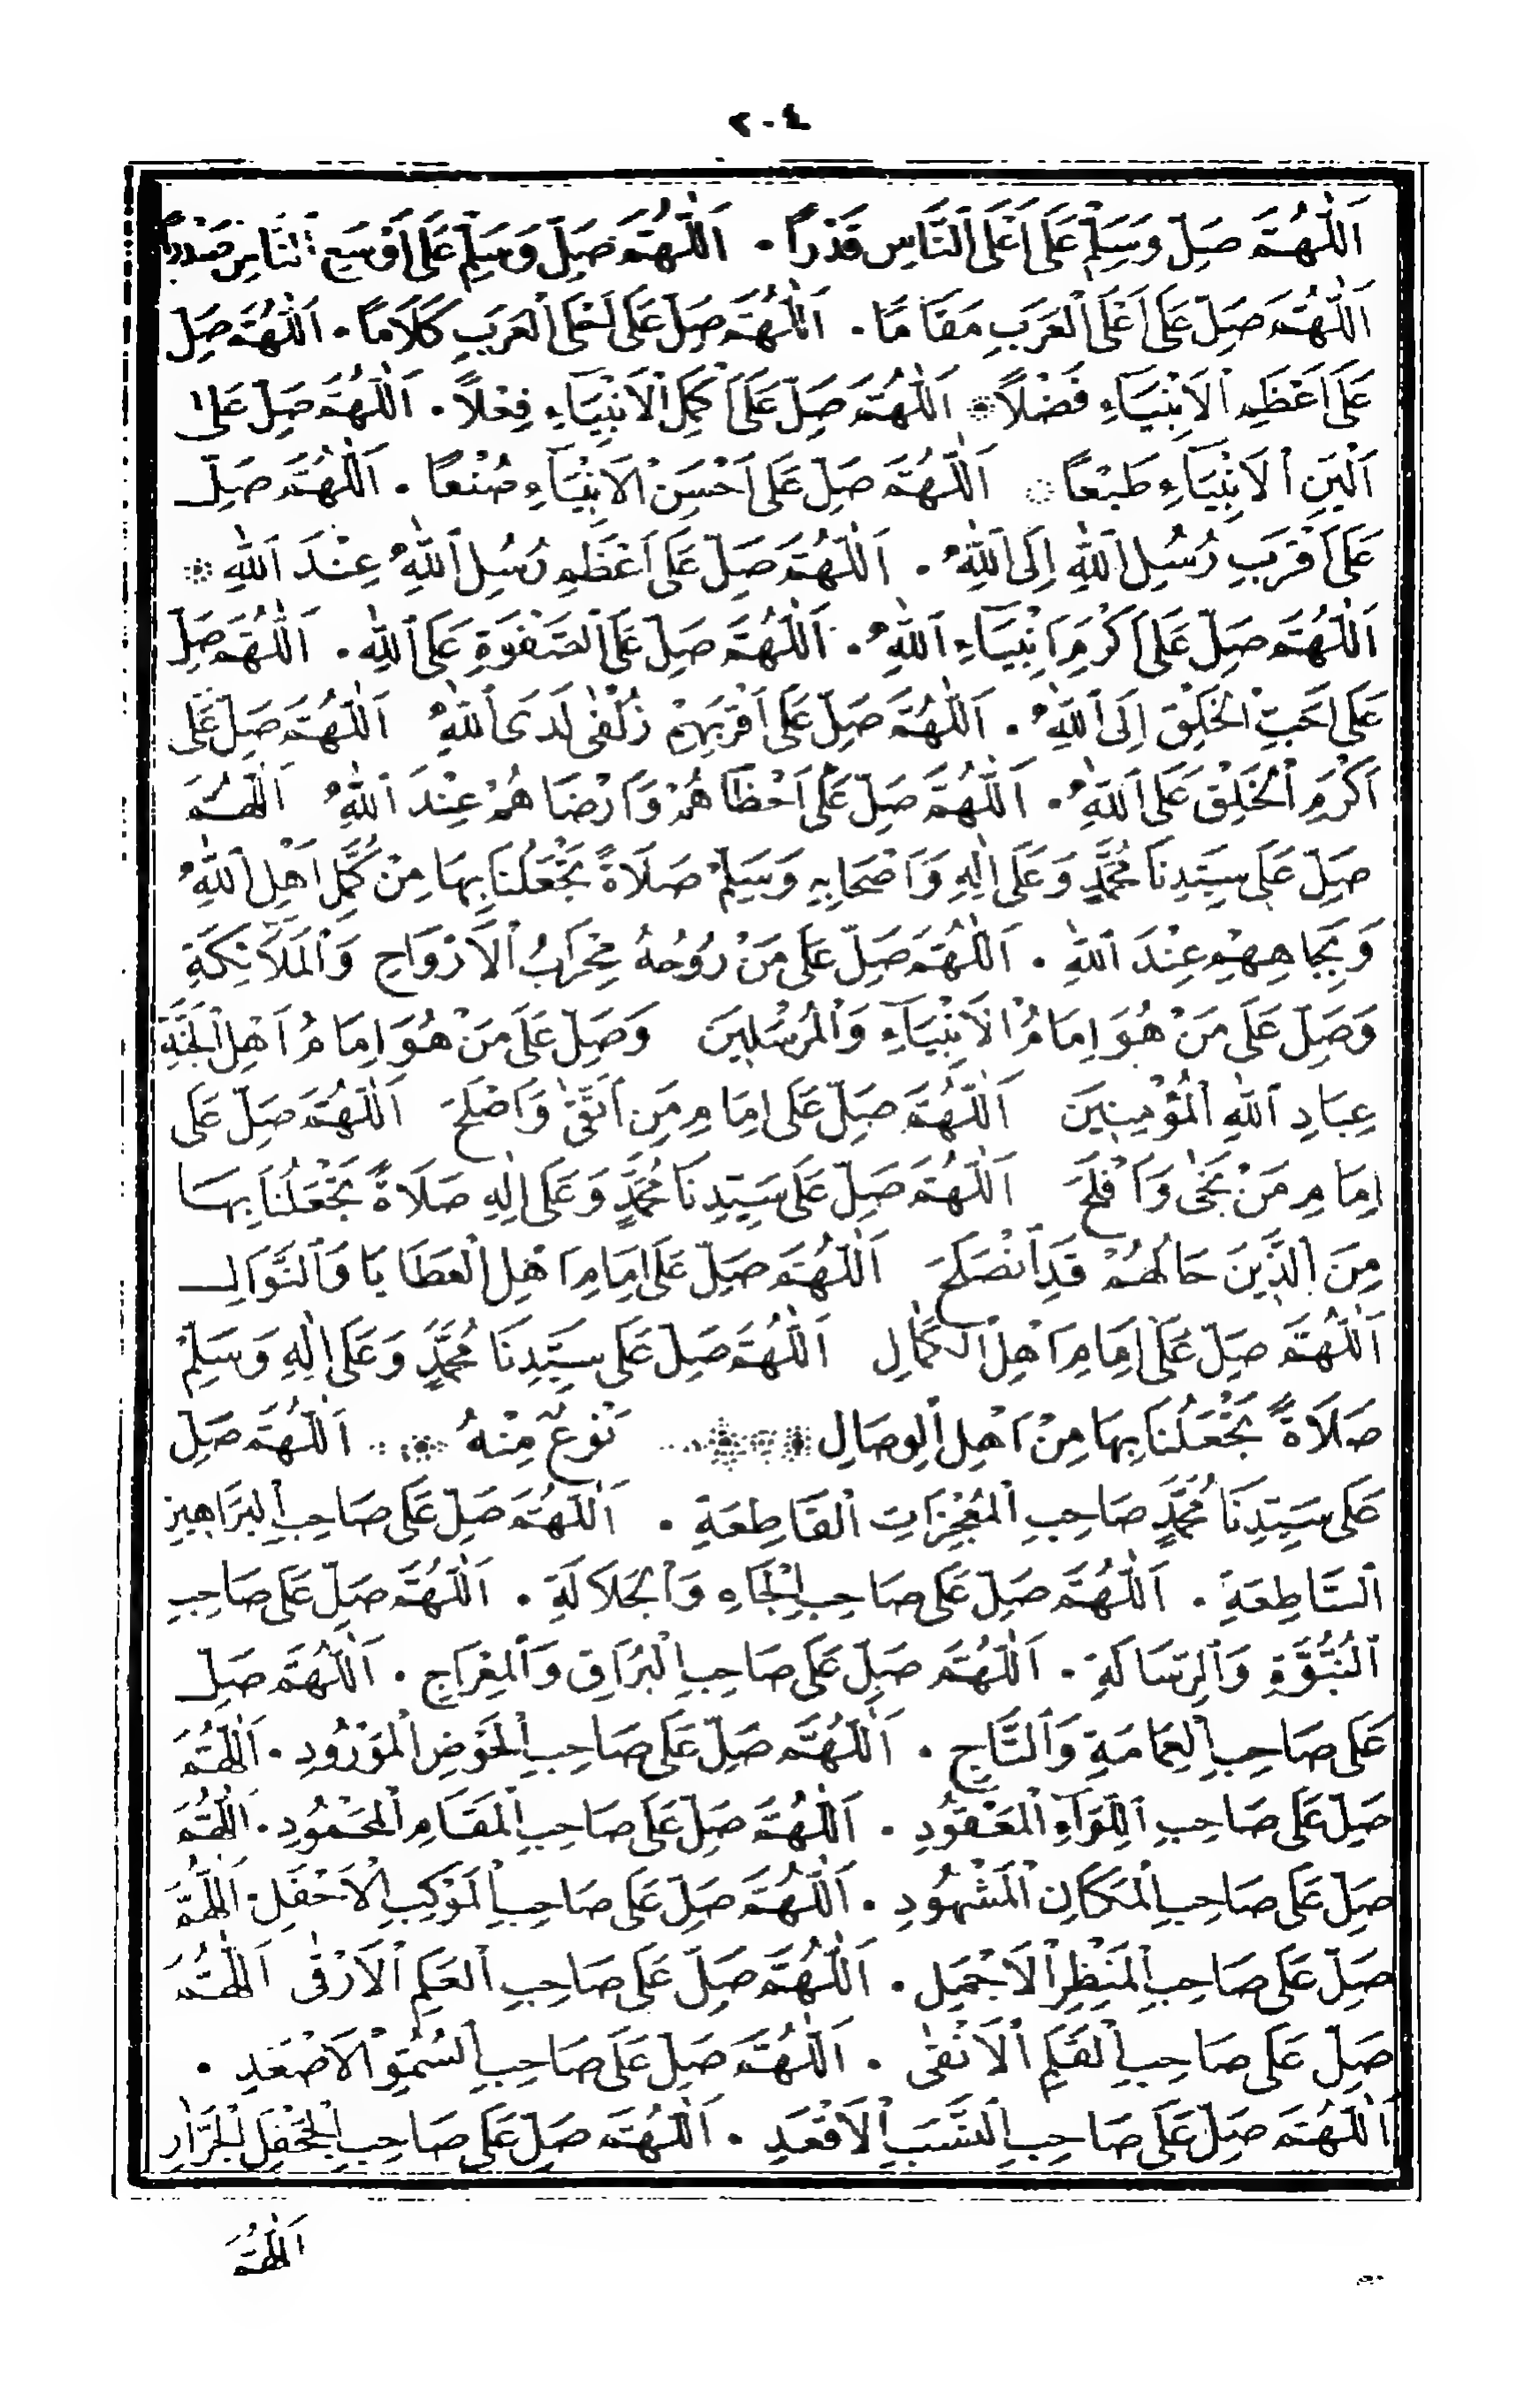 ٢٠٤
اَللّٰهُمَّ صَلِّ وَسَلِّمْ عَلَى اَعْلَى النَّاسِ قَدْرًا . اَللّٰهُمَّ صَلِّ وَسَلِّمْ عَلَى اَوْسَعِ النَّاسِ صَدْرًا
اَللّٰهُمَّ صَلِّ عَلَى اَعْلَى الْعَرَبِ مَقَامًا . اَللّٰهُمَّ صَلِّ عَلَى اَحْلَى الْعَرَبِ كَلَامًا . اَللّٰهُمَّ صَلِّ
عَلَى اَعْظَمِ الْاَنْبِيَآءِ فَضْلًا اَللّٰهُمَّ صَلِّ عَلَى اَكْمَلِ الْاَنْبِيَآءِ فِعْلًا . اَللّٰهُمَّ صَلِّ عَلٰى
اَلْيَنِ الْاَنْبِيَآءِ طَبْعًا اَللّٰهُمَّ صَلِّ عَلَى اَحْسَنِ الْاَنْبِيَآءِ صُنْعًا . اَللّٰهُمَّ صَلِّ
عَلَى اَقْرَبِ رُسُلِ اللّٰهِ اِلَى اللّٰهِ . اَللّٰهُمَّ صَلِّ عَلَى اَعْظَمِ رُسُلِ اللّٰهِ عِنْدَ اللّٰهِ
اَللّٰهُمَّ صَلِّ عَلَى اَكْرَمِ اَنْبِيَآءِ اللّٰهِ . اَللّٰهُمَّ صَلِّ عَلَى الصَّفْوَةِ عَلَى اللّٰهِ . اَللّٰهُمَّ صَلِّ
عَلَى اَحَبِّ الْخَلْقِ اِلَى اللّٰهِ . اَللّٰهُمَّ صَلِّ عَلَى اَقْرَبِهِمْ زُلْفٰى لَدَى اللّٰهِ اَللّٰهُمَّ صَلِّ عَلَى
اَكْرَمِ الْخَلْقِ عَلَى اللّٰهِ . اَللّٰهُمَّ صَلِّ عَلَى اَحْظَاهُمْ وَاَرْضَاهُمْ عِنْدَ اللّٰهِ اَللّٰهُمَّ
صَلِّ عَلَى سَيِّدِنَا مُحَمَّدٍ وَعَلَى اٰلِهِ وَاَصْحَابِهِ وَسَلِّمْ صَلَاةً تَجْعَلُنَا بِهَا مِنْ كُمَّلِ اَهْلِ اللّٰهِ
وَبِجَاهِهِمْ عِنْدَ اللّٰهِ . اَللّٰهُمَّ صَلِّ عَلَى مَنْ رُوُحُهُ مِحْرَابُ الْاَرْوَاحِ وَالْمَلَآئِكَةِ
وَصَلِّ عَلَى مَنْ هُوَ اِمَامُ الْاَنْبِيَآءِ وَالْمُرْسَلِينَ وَصَلِّ عَلَى مَنْ هُوَ اِمَامُ اَهْلِ الْجَنَّةِ
عِبَادِ اللّٰهِ الْمُؤْمِنِينَ اَللّٰهُمَّ صَلِّ عَلَى اِمَامِ مَنِ اتَّقٰى وَاَصْلَحَ اَللّٰهُمَّ صَلِّ عَلَى
اِمَامِ مَنْ نَجٰى وَاَفْلَحَ اَللّٰهُمَّ صَلِّ عَلَى سَيِّدِنَا مُحَمَّدٍ وَعَلَى اٰلِهِ صَلَاةً تَجْعَلُنَا بِهَا
مِنَ الَّذِينَ حَالُهُمْ قَدِ انْصَلَحَ اَللّٰهُمَّ صَلِّ عَلَى اِمَامِ اَهْلِ الْعَطَايَا وَالنَّوَالِ
اَللّٰهُمَّ صَلِّ عَلَى اِمَامِ اَهْلِ الْكَمَالِ اَللّٰهُمَّ صَلِّ عَلَى سَيِّدِنَا مُحَمَّدٍ وَعَلَى اٰلِهِ وَسَلِّمْ
صَلَاةً تَجْعَلُنَا بِهَا مِنْ اَهْلِ الْوِصَالِ نَوْعٌ مِنْهُ اَللّٰهُمَّ صَلِّ
عَلَى سَيِّدِنَا مُحَمَّدٍ صَاحِبِ الْمُعْجِزَاتِ الْقَاطِعَةِ . اَللّٰهُمَّ صَلِّ عَلَى صَاحِبِ الْبَرَاهِينِ
السَّاطِعَةِ . اَللّٰهُمَّ صَلِّ عَلَى صَاحِبِ الْجَاهِ وَالْجَلَالَةِ . اَللّٰهُمَّ صَلِّ عَلَى صَاحِبِ
النُّبُوَّةِ وَالرِّسَالَةِ . اَللّٰهُمَّ صَلِّ عَلَى صَاحِبِ الْبُرَاقِ وَالْمِعْرَاجِ . اَللّٰهُمَّ صَلِّ
عَلَى صَاحِبِ الْعِمَامَةِ وَالتَّاجِ . اَللّٰهُمَّ صَلِّ عَلَى صَاحِبِ الْحَوْضِ الْمَوْرُودِ . اَللّٰهُمَّ
صَلِّ عَلَى صَاحِبِ اللِّوَآءِ الْمَعْقُودِ . اَللّٰهُمَّ صَلِّ عَلَى صَاحِبِ الْمَقَامِ الْمَحْمُودِ . اَللّٰهُمَّ
صَلِّ عَلَى صَاحِبِ الْمَكَانِ الْمَشْهُودِ . اَللّٰهُمَّ صَلِّ عَلَى صَاحِبِ الْمَوْكِبِ الْاَحْفَلِ . اَللّٰهُمَّ
صَلِّ عَلَى صَاحِبِ الْمَنْظَرِ الْاَجْمَلِ . اَللّٰهُمَّ صَلِّ عَلَى صَاحِبِ الْعَلَمِ الْاَرْقٰى اَللّٰهُمَّ
صَلِّ عَلَى صَاحِبِ الْقَلَمِ الْاَنْقٰى . اَللّٰهُمَّ صَلِّ عَلَى صَاحِبِ السُّمُوِّ الْاَصْعَدِ .
اَللّٰهُمَّ صَلِّ عَلَى صَاحِبِ النَّسَبِ الْاَقْعَدِ . اَللّٰهُمَّ صَلِّ عَلَى صَاحِبِ الْجَحْفَلِ الْجَرَّارِ
اَللّٰهُمَّ